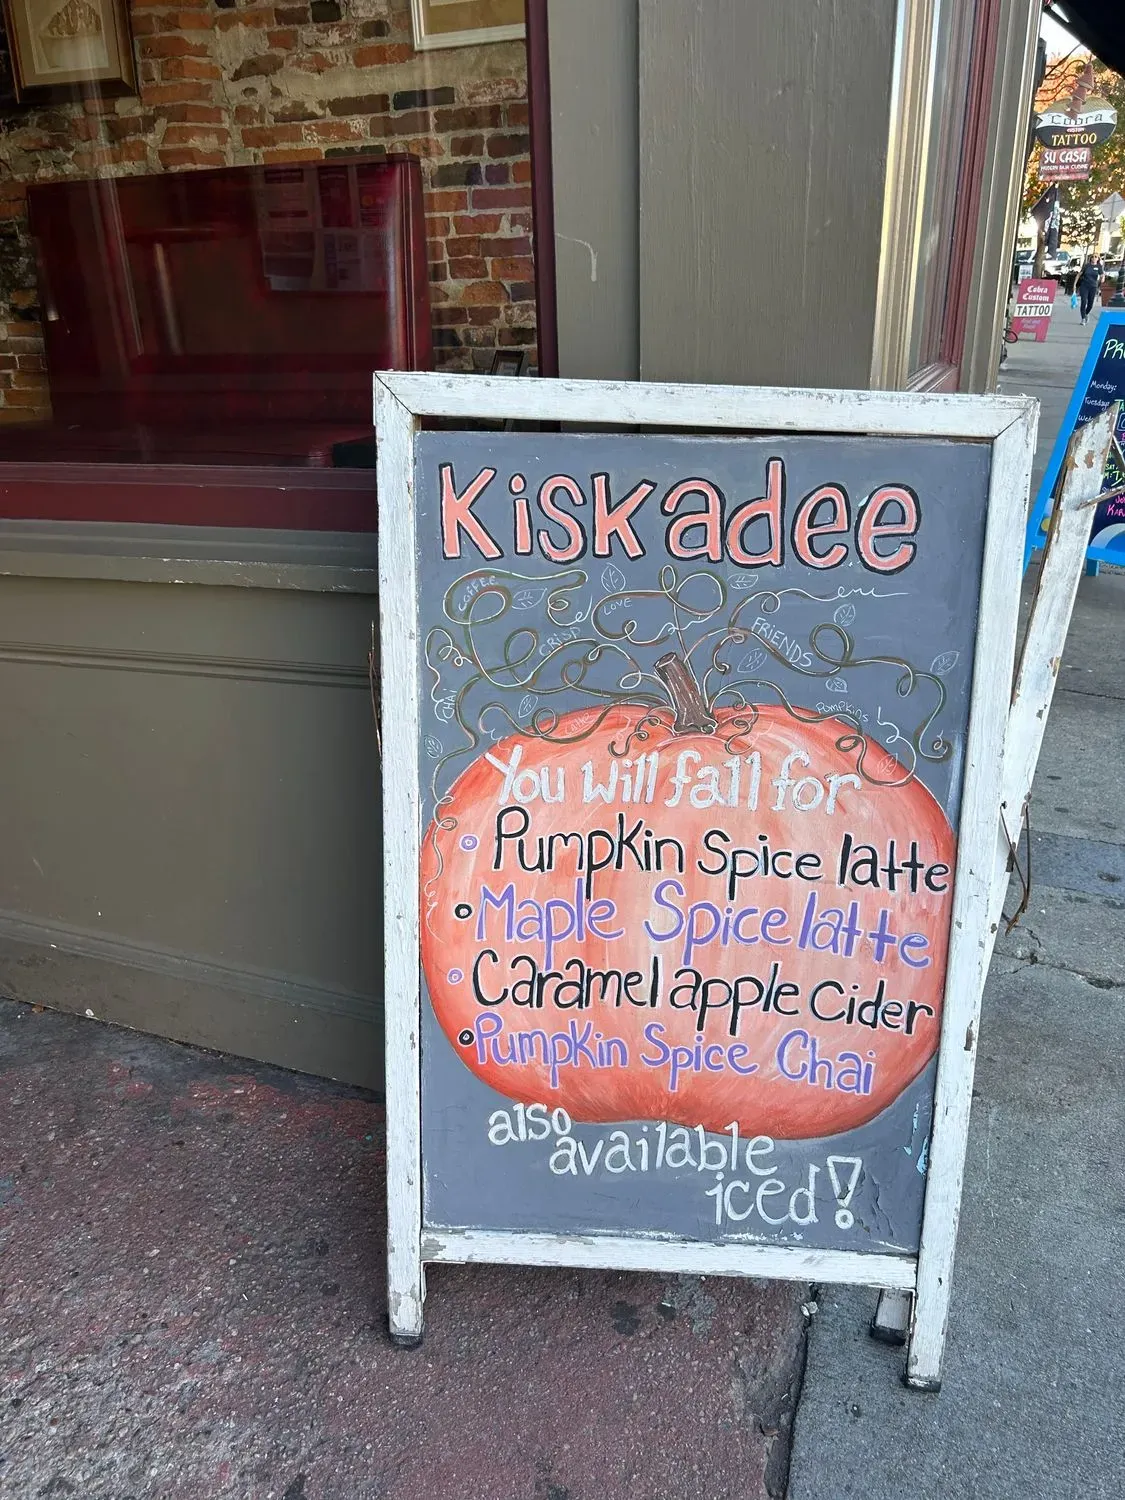 Kiskadee
COFFEE
LOVE
CRISP
FRIENDS
CHAI
PUMPKINS
You will fall for
Pumpkin Spice latte
Maple Spice latte
Caramel apple Cider
Pumpkin Spice Chai
also
available
iced!
Cobra
CUSTOM
TATTOO
SU CASA
Cobra
Custom
TATTOO
Monday:
Tuesday: